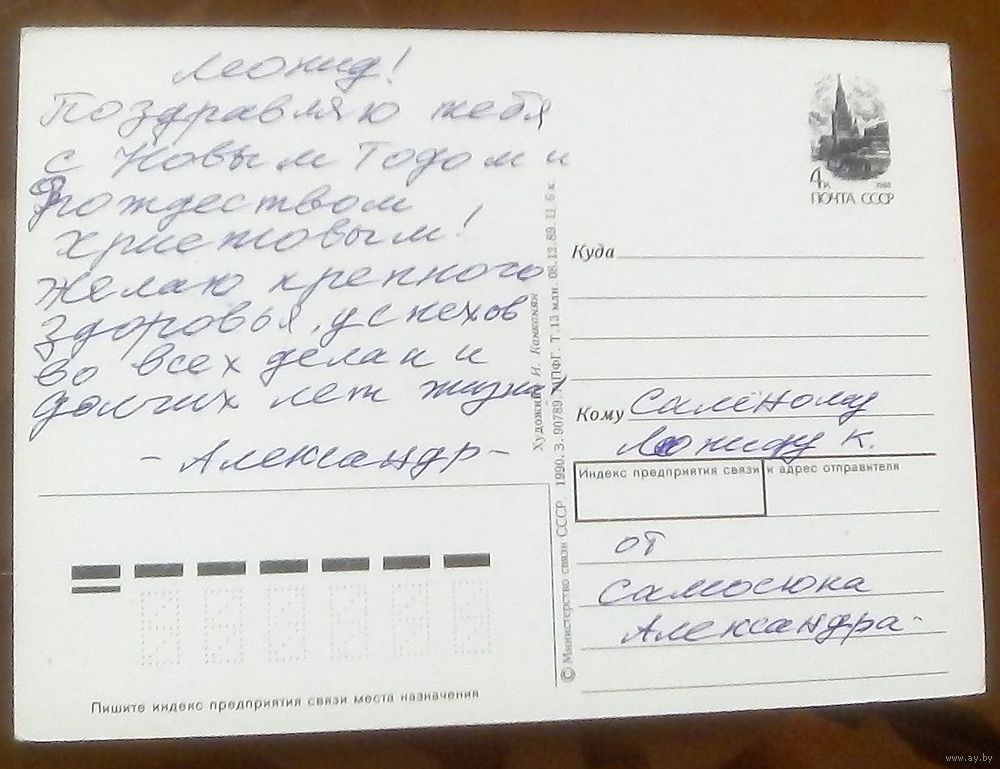 Леонид!
Поздравляю тебя
с Новым Годом и
Рождеством
Христовым!
Желаю крепкого
здоровья, успехов
во всех делах и
долгих лет жизни!
- Александр -
Пишите индекс предприятия связи места назначения
© Министерство связи СССР. 1990. З. 90789. ППФГ. Т. 13 млн. 08.12.89. Ц 6 к.
Художник И.
4 к. 1988
ПОЧТА СССР
Куда
Кому Салёному
Леониду К.
Индекс предприятия связи и адрес отправителя
от
Самосюка
Александра-
www.ay.by